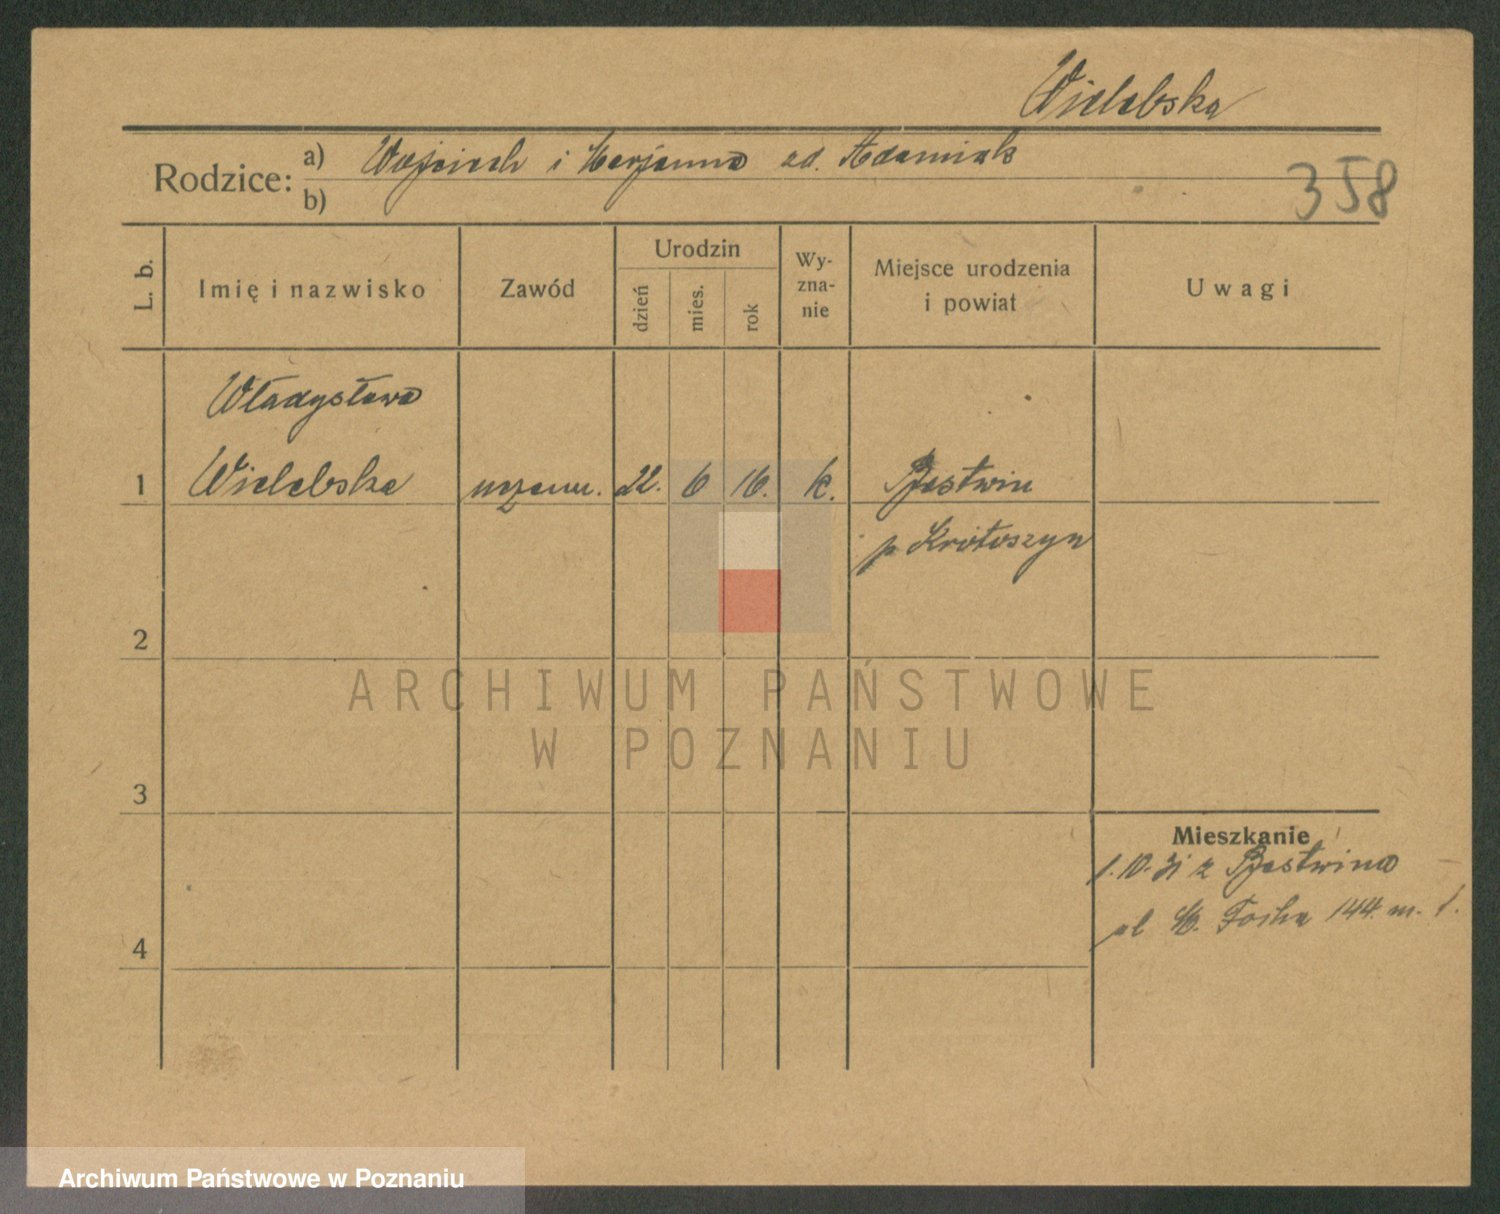 Wielebska
Rodzice: a) Wojciech i Marjanna zd. Adamiak
b)
358
L. b.
Imię i nazwisko
Zawód
Urodzin
dzień
mies.
rok
Wy-
zna-
nie
Miejsce urodzenia
i powiat
Uwagi
Władysława
1 Wielebska uczenn. 22. 6 16. k. Bestwin
p Krotoszyn
2
3
4
Mieszkanie
1.10.31 z Bestwina
ul M. Focha 144. m. 1.
ARCHIWUM PAŃSTWOWE
W POZNANIU
Archiwum Państwowe w Poznaniu